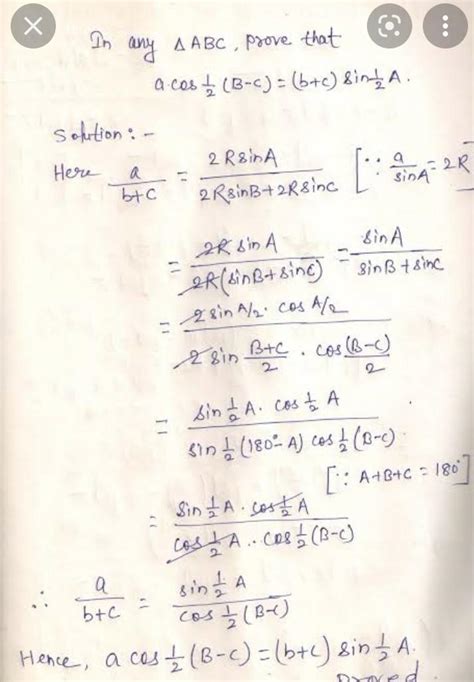 In any △ABC, prove that
a cos ½ (B-C) = (b+c) sin ½ A.
Solution :-
Here a/(b+c) = 2R sin A / (2R sin B + 2R sin C) [∵ a/sin A = 2R]
= 2R sin A / 2R(sin B + sin C) = sin A / (sin B + sin C)
= 2 sin A/2 . cos A/2 / (2 sin (B+C)/2 . cos (B-C)/2)
= sin ½ A . cos ½ A / (sin ½ (180° - A) cos ½ (B-C))
[∵ A+B+C = 180°]
= sin ½ A . cos ½ A / (cos ½ A . cos ½ (B-C))
∴ a/(b+c) = sin ½ A / cos ½ (B-C)
Hence, a cos ½ (B-C) = (b+c) sin ½ A.
Proved